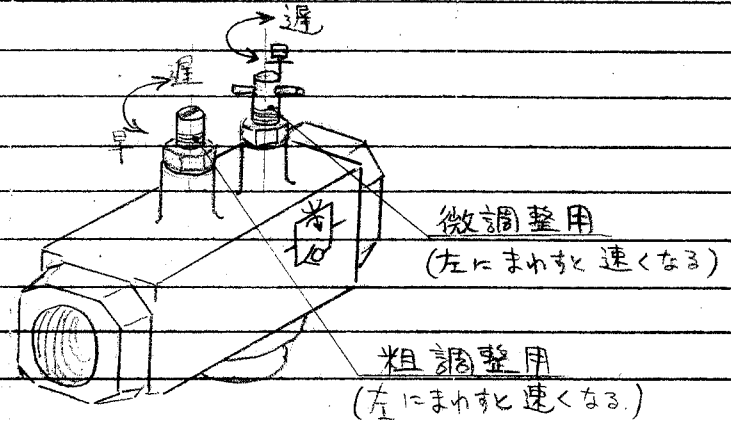 遅
早
遅
早
微調整用
(左にまわすと速くなる)
粗調整用
(左にまわすと速くなる.)